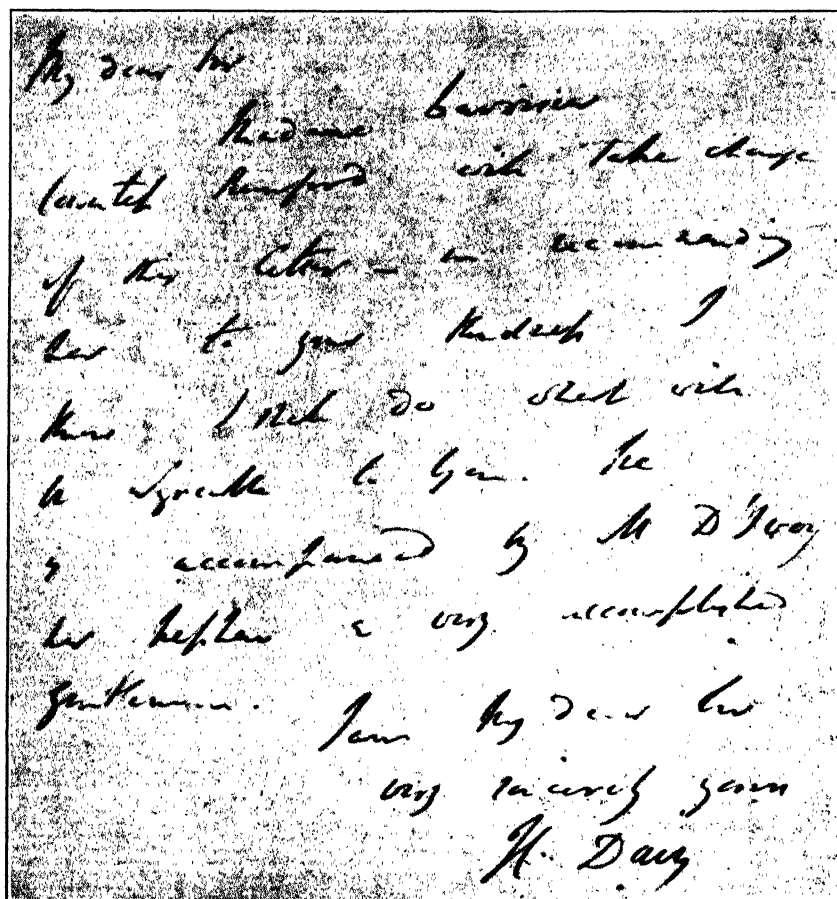 My dear Sir
Madame Lavoisier
Countess Rumford will take charge
of this letter – in recommending
her to your kindness I
know I shall do what will
be agreeable to you. She
is accompanied by M D'Ivoy
her nephew a very accomplished
gentleman.
I am my dear Sir
very sincerely yours
H. Davy